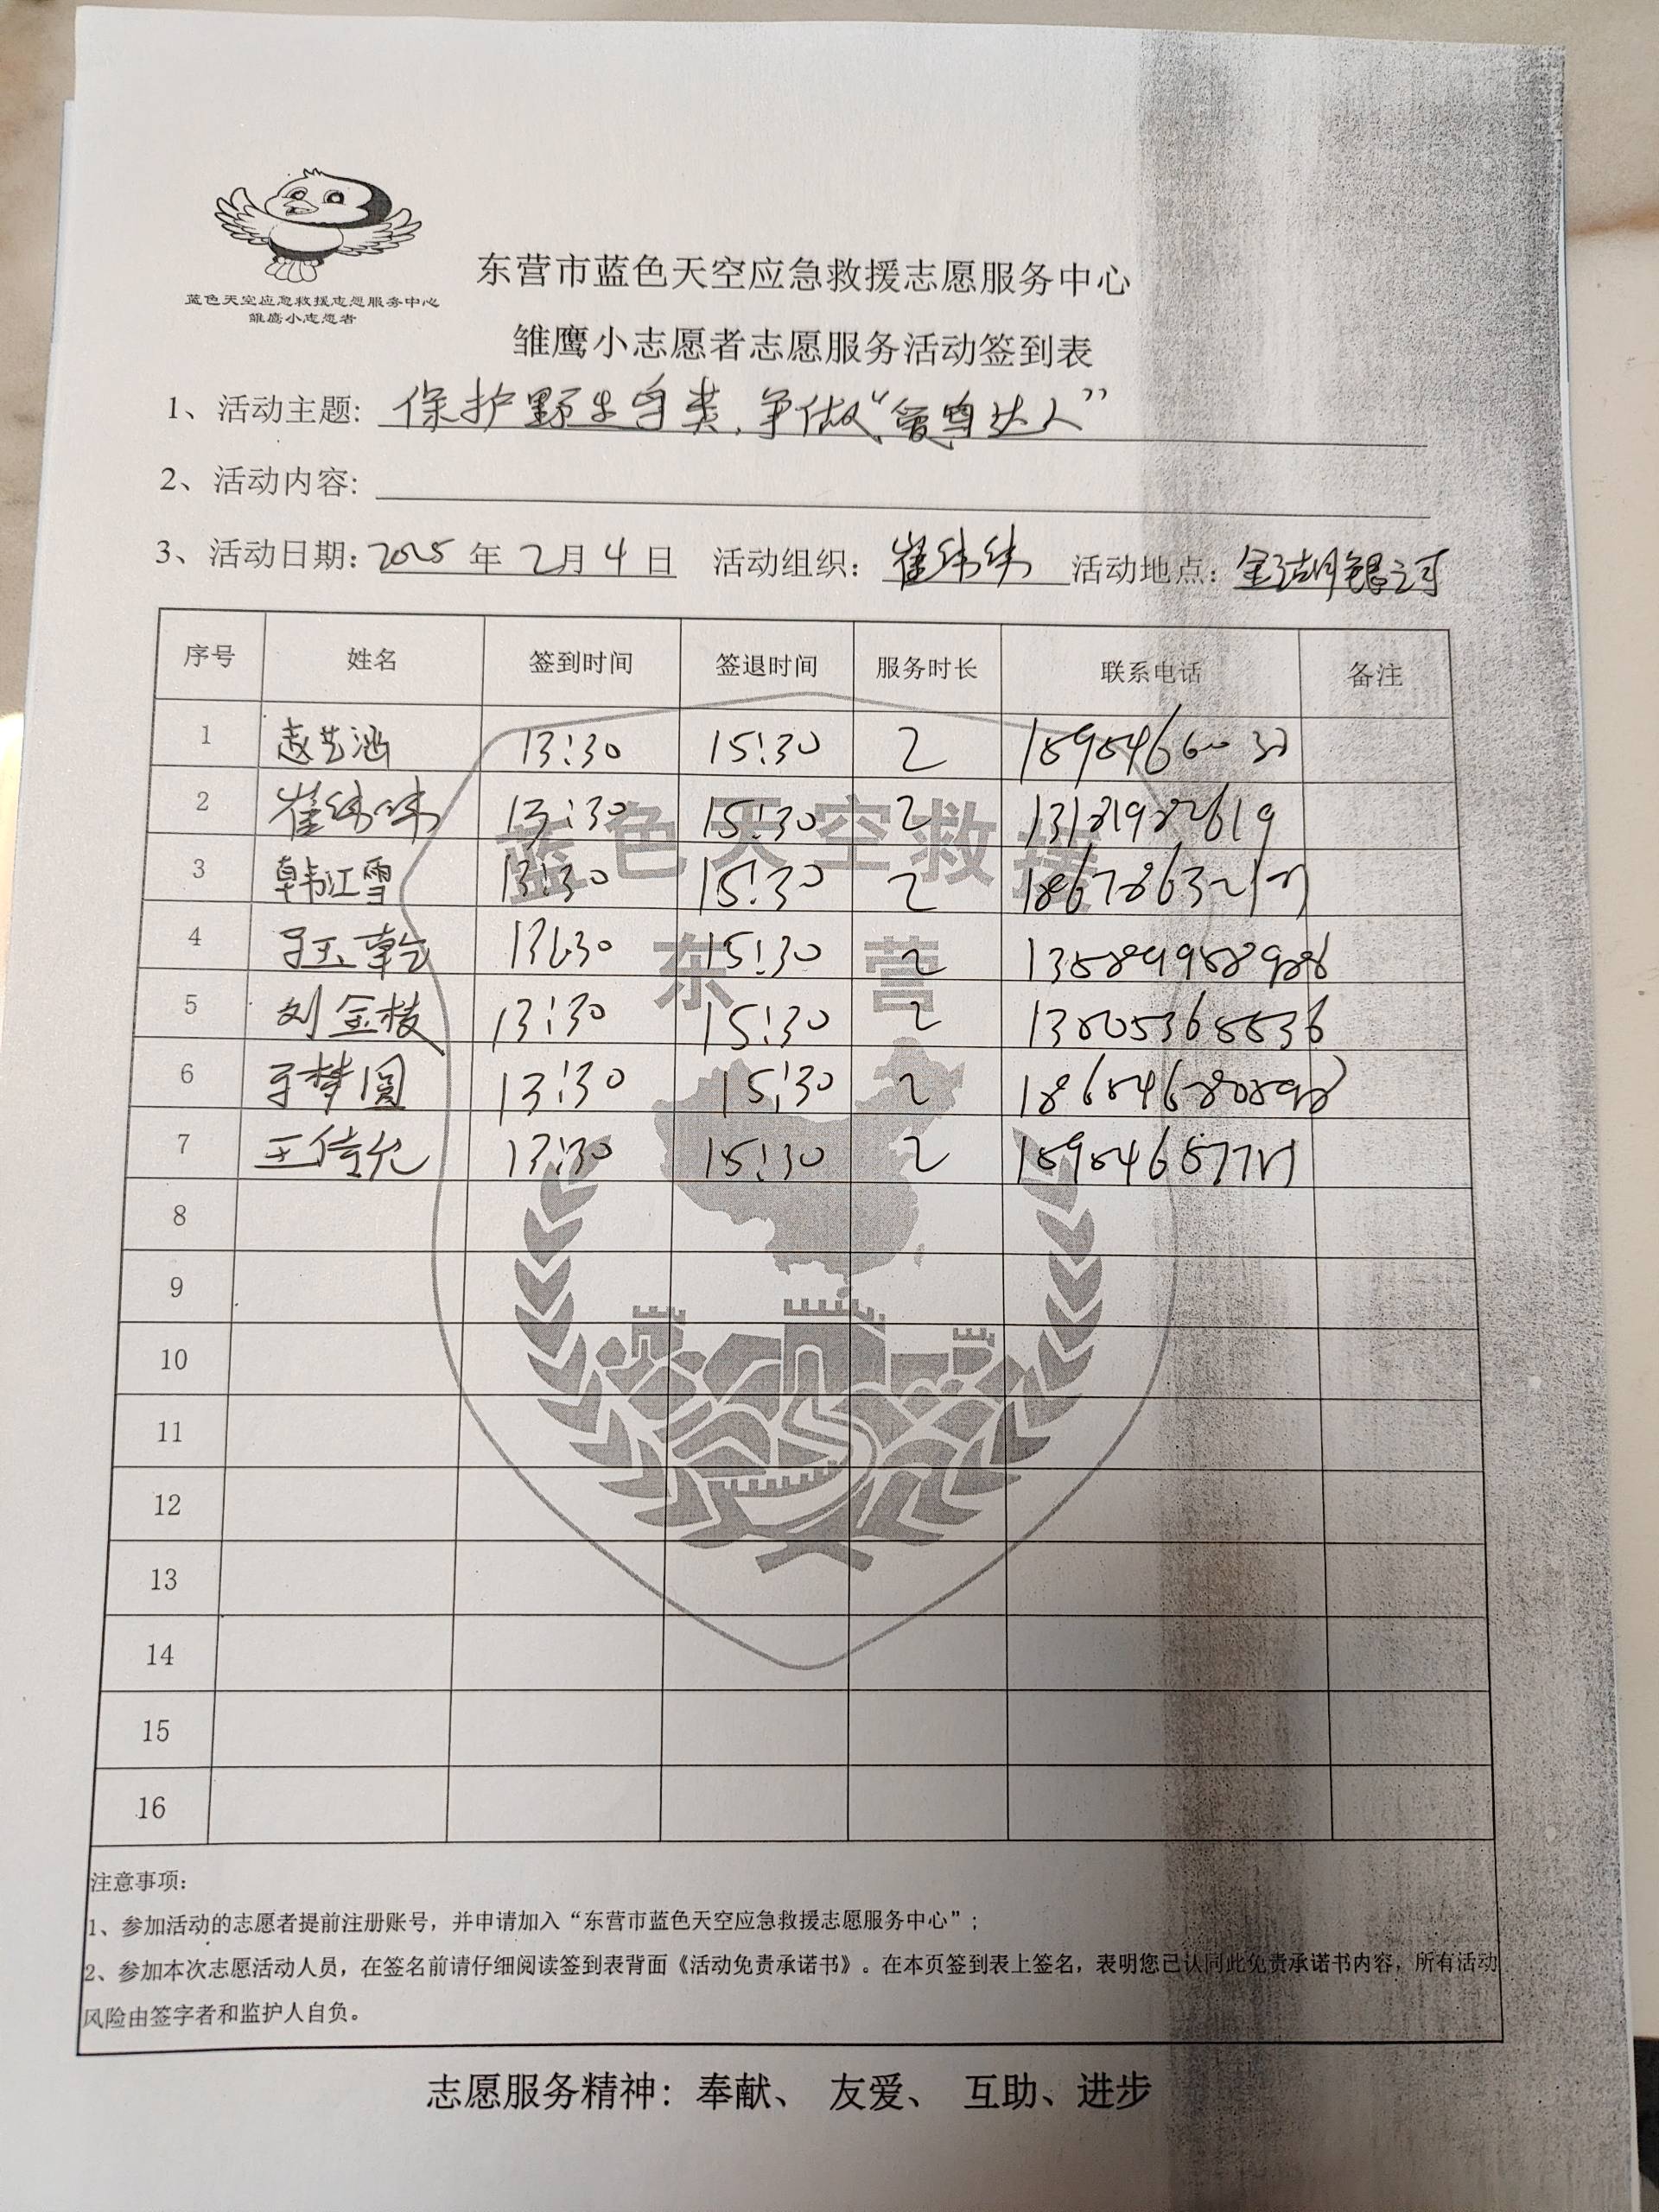 蓝色天空应急救援志愿服务中心
雏鹰小志愿者
东营市蓝色天空应急救援志愿服务中心
雏鹰小志愿者志愿服务活动签到表
1、活动主题: 保护野生鸟类,争做“爱鸟达人”
2、活动内容:
3、活动日期: 2025年2月4日 活动组织: 崔纬纬 活动地点: 金湖银河
序号 姓名 签到时间 签退时间 服务时长 联系电话 备注
1 赵艺涵 13:30 15:30 2
2 崔纬纬 13:30 15:30 2 13181982619
3 韩江雪 13:30 15:30 2
4 于玉乾 13:30 15:30 2
5 刘金枝 13:30 15:30 2
6 于梦圆 13:30 15:30 2
7 王倚允 13:30 15:30 2
8
9
10
11
12
13
14
15
16
蓝色天空救援
东营
注意事项:
1、参加活动的志愿者提前注册账号，并申请加入“东营市蓝色天空应急救援志愿服务中心”;
2、参加本次志愿活动人员，在签名前请仔细阅读签到表背面《活动免责承诺书》。在本页签到表上签名，表明您已认同此免责承诺书内容，所有活动
风险由签字者和监护人自负。
志愿服务精神: 奉献、 友爱、 互助、进步